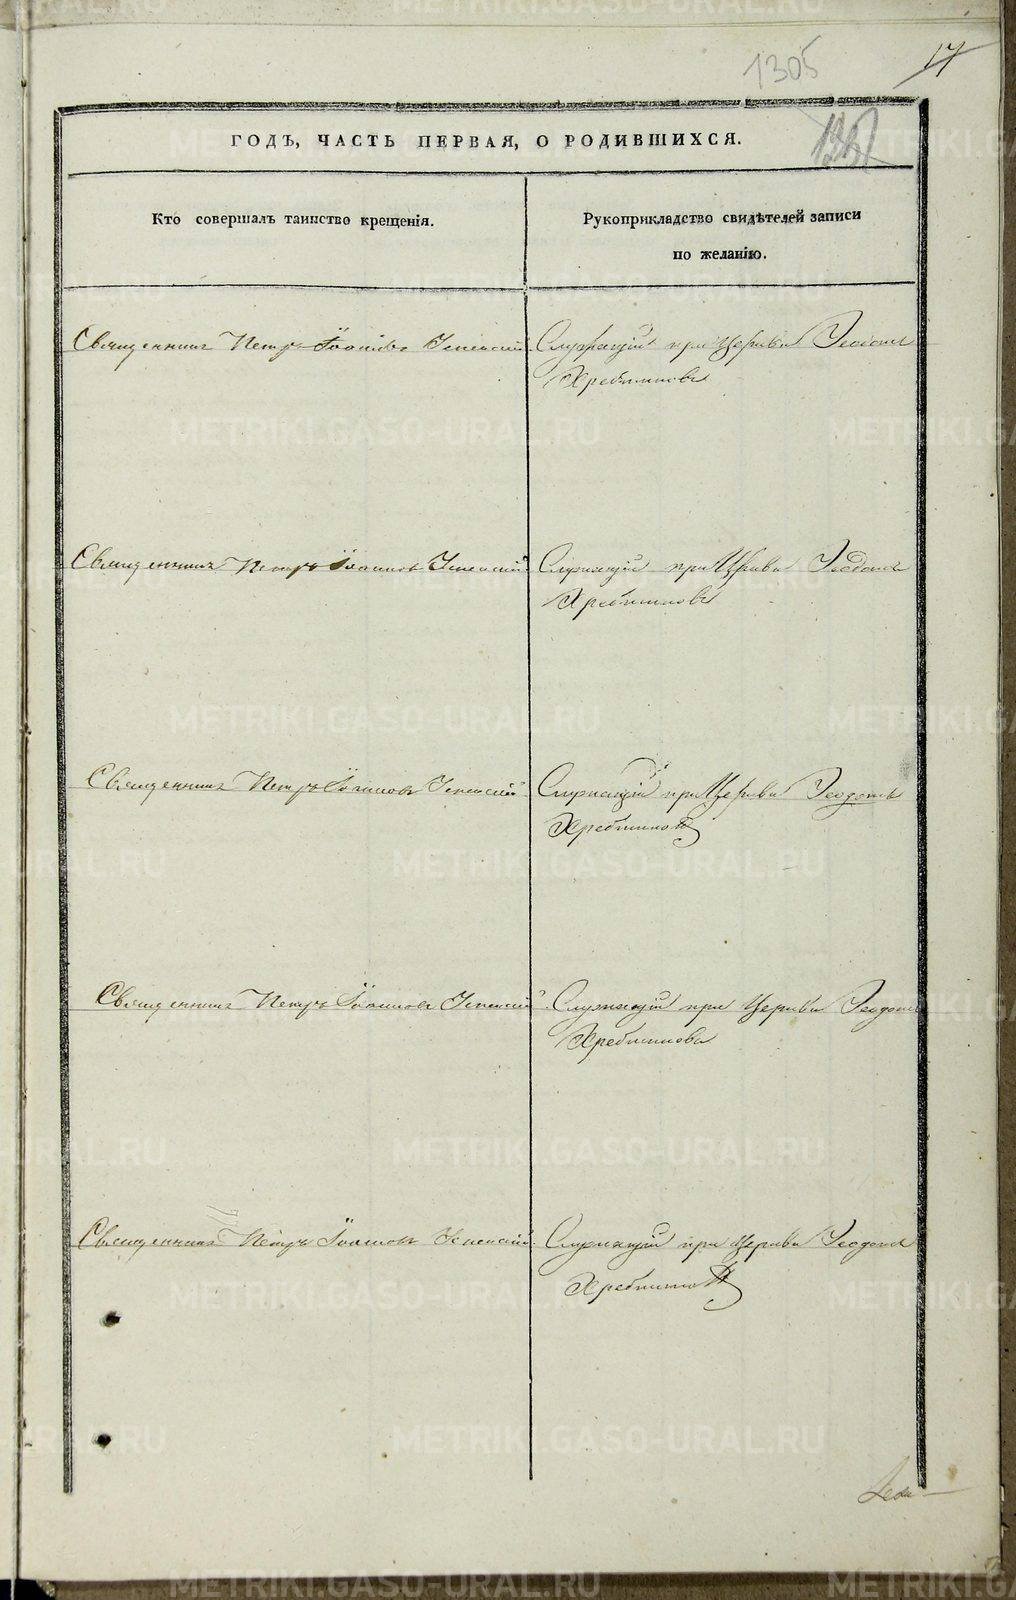 17
1305
ГОДЪ, ЧАСТЬ ПЕРВАЯ, О РОДИВШИХСЯ.
Кто совершалъ таинство крещенія.
Рукоприкладство свидѣтелей записи
по желанію.
Священникъ Петръ Іоанновъ Успенскій
Служащій при Церкви Ѳеодотъ
Хребтиковъ
Священникъ Петръ Іоанновъ Успенскій
Служащій при Церкви Ѳеодотъ
Хребтиковъ
Священникъ Петръ Іоанновъ Успенскій
Служащій при Церкви Ѳеодотъ
Хребтиковъ
Священникъ Петръ Іоанновъ Успенскій
Служащій при Церкви Ѳеодотъ
Хребтиковъ
Священникъ Петръ Іоанновъ Успенскій
Служащій при Церкви Ѳеодотъ
Хребтиковъ
METRIKI.GASO-URAL.RU